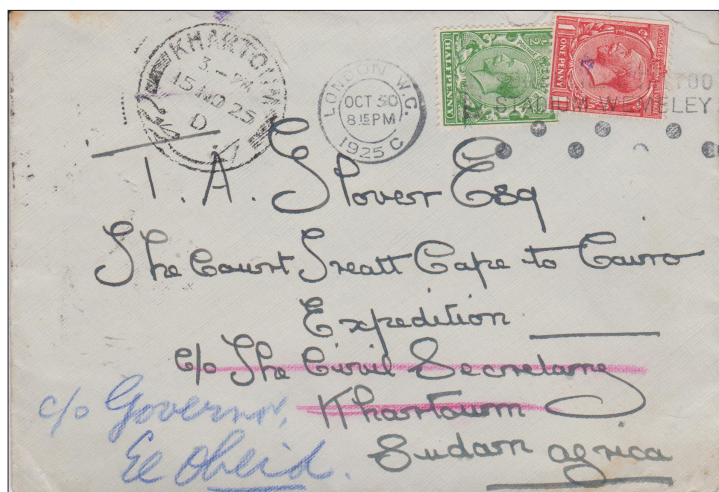 KHARTOUM
3 - PM
15 NO 25
D
LONDON. W.C.
OCT 30
8.15 PM
1925 C
HALFPENNY
ONE PENNY
STADIUM WEMBLEY
T. A. Glover Esq
The Court Treatt Cape to Cairo
Expedition
c/o The Civil Secretary
Khartoum
Sudan Africa
c/o Governor,
El Obeid.